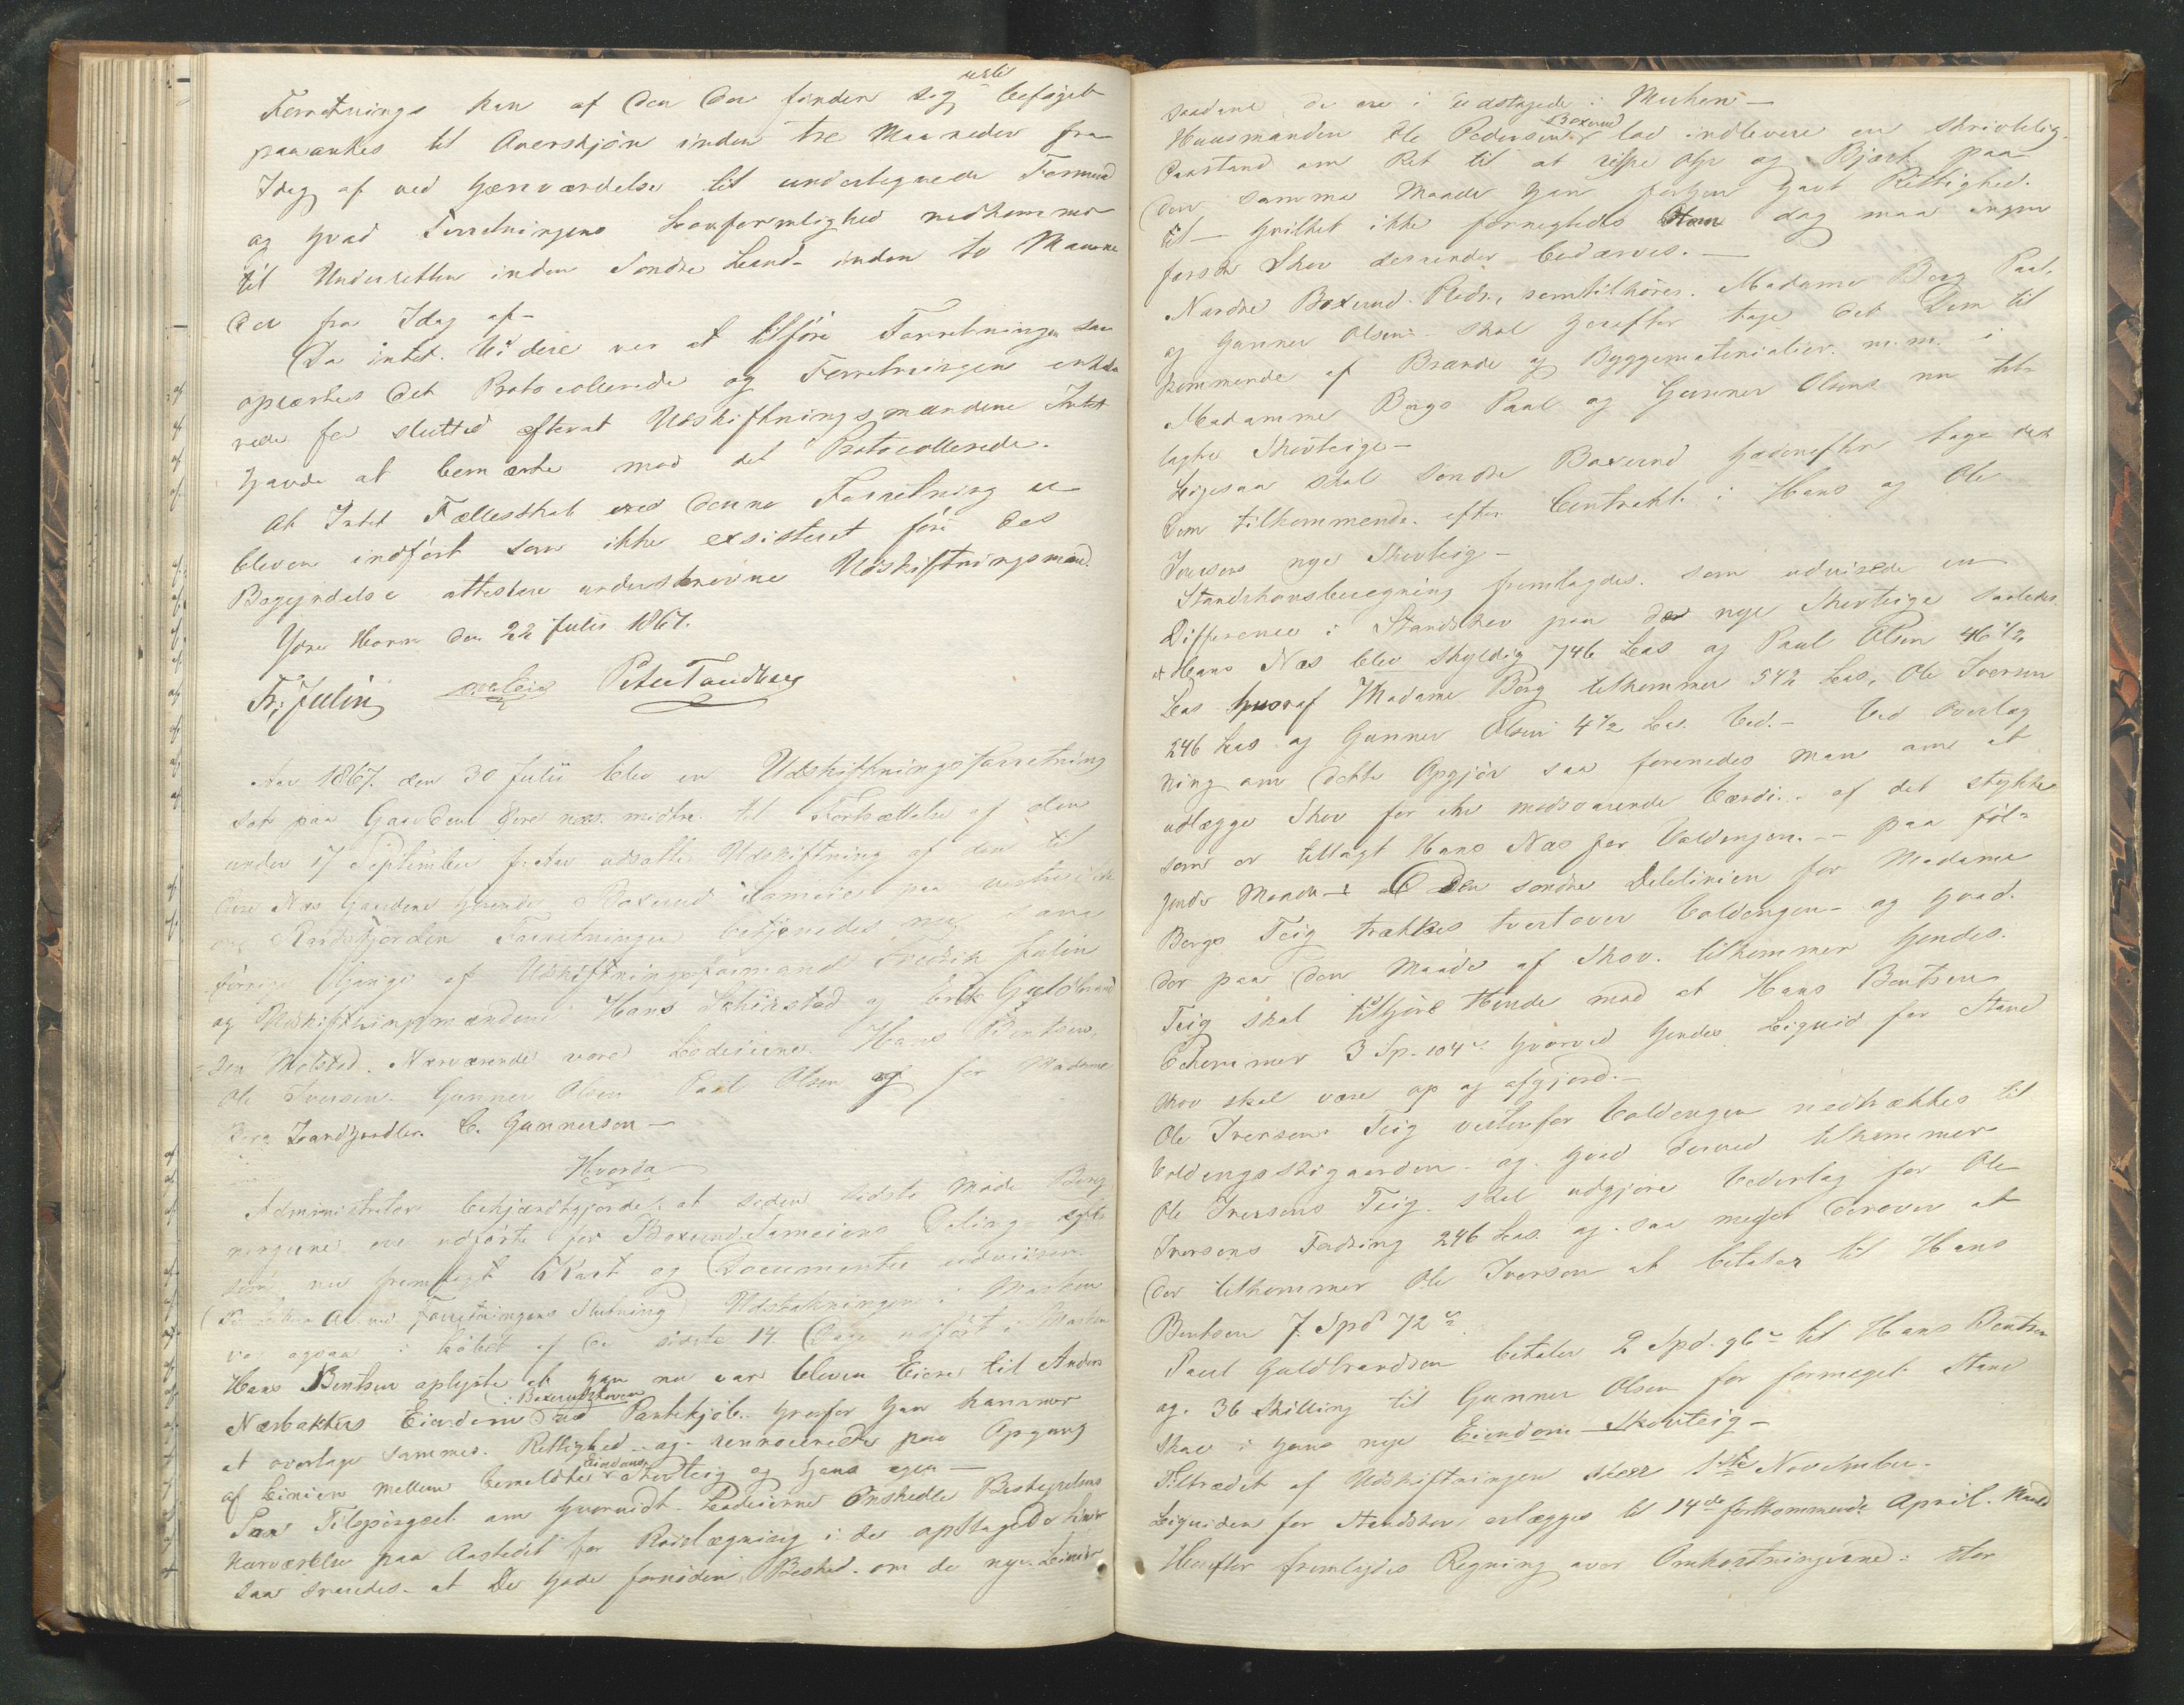 urtil
Forretnings kan af den der finder sig beføiet
paaankes til Overskjøn inden tre Maaneder fra
Idag af ved Henvendelse til undertegnede Formand
og hvad Forretningens Lovformlighed vedkommer
til Underretten inden Søndre Land inden to Maane
der fra Idag af-
Da intet Videre var at tilføre Forretningen saa
oplæstes det Protocollerede og Forretningen erklæ
redes for sluttet efterat Udskiftningsmændene Intet
havde at bemærke mod det Protocollerede.
At Intet Fællesskab ved denne Forretning er
bleven indført som ikke exsisteret før des
Begyndelse attestere underskrevne Udskiftningsmænd
Ydre Horn den 22 Julii 1867.
Fr. Julin Peter Tandberg
Aar 1867. den 30 Julii blev en Udskiftningsforretning
sat paa Gaarden næs midtre til Fortsættelse af den
under 17 September f: Aar udsatte Udskiftning af den til
Næs Gaardene hørende Boxerud Sameie paa vestre side
Randsfjorden Forretningen betjenedes nu som
forrige Gange af Udskiftningsformand Fredrik Julin
og Udskiftningsmændene Hans og Erik Guldbrand
sen Molstad. Nærværende vare Lodeierne Hans Bentsen,
Ole Iversen Gunner Olsen Paul Olsen og for Madame
Berg Landhandler C. Gunnerson-
Hvorda
Administrator bekjendtgjorde: at siden sidste Møde Bereg
ningerne ere udførte for Boxerud Sameiens Deling
som nu fremlagt Kart og Documenter udviiser
ved Forretningens Slutning Udstikningen i Marken
var ogsaa i Løbet af de sidste 14 Dage udført i Marken
Hans Bentsen oplyste at han nu var bleven Eiere til Anders
: Boxerudskoven
Næsbakkens Eiendom ved Pantekjøb hvorfor han kommer
at overtage sammes Rettighed og renoncerede paa Opgang
Eiendoms
af Linien mellem bemeldtes Skovteig og hans egen-
Paa Tilspørgsel om hvorvidt Lodeierne Ønskedte Bestyrelsens
nærværelse paa Aastedet for Raadlægning i de opstagede Linier
saa svaredes at De havde fornøden Besked om de nye Linier
saadane de ere i Udstagede i Marken-
Boxerud
Huusmanden Ole Pedersen lod indlevere en skrivtelig
Paastand om Ret til at rispe Ahr og Bjørk paa
den samme Maade han forhen havt Rettighed
til- hvilket ikke fornegtedes dog maa ingen
forsat Skov derunder bedærves.-
Nordre Boxerud Plads, somtilhører Madame Berg Paul
og Gunner Olsen skal herefter tage det Dem til
kommende af Brænde og Byggematerialier m.m. i
Madamme Bergs Paul og Gunner Olsens nu til
lagte Skovteige-
Ligesaa skal søndre Boxerud herefter tage det
dem tilkommende efter Contrakt i Hans og Ole
Iversens nye Skovteig-
Standskovsberegning fremlagdes som udviisde en
Difference i Standskov paa de nye Skovteige saaledes
at Hans Næs blev skyldig 746 Las og Paul Olsen 46 1/2
Las hvoraf Madame Berg tilkommer 542 Las, Ole Iversen
246 Las og Gunner Olsen 4 1/2 Las Ved.- Ved Overlæg
ning om dette Opgjør saa forenedes man om at
udlægge Skov for en modsvarende Værdi af det stykke
som er tillagt Hans Næs for Voldengen.- paa føl-
gende Maade- Den søndre Delelinien for Madame
Bergs Teig trækkes tvertover Voldengen og hvad
der paa den Maade af Skov tilkommer hendes
Teig skal tilhøre Hende mod at Hans Bentsen
bekommer 3 Sp. 104 s hvorved hendes Liquid for stand
skov skal være op og afgjord.-
Ole Iversens Teig vestenfor Voldengen nedtrækkes til
Voldengsskigaarden og hvad derved tilkommer
Ole Iversens Teig skal udgjøre Vederlag for Ole
Iversens Fordring 246 Las og saa meget derover at
der tilkommer Ole Iversen at betaler til Hans
Bentsen 7 Spd 72 s.
Paul Guldbrandsen betaler 2 Spd. 96 s til Hans Bentsen
og 36 Skilling til Gunner Olsen for formeget Stand
skov i hans nye Eiendom Skovteig-
Tiltrædet af Udskiftningen skeer 1ste November.
Liquiden for Standskov erlægges til 14de førstkommende April.
Herefter fremlagdes Regning over Omkostningerne: stor